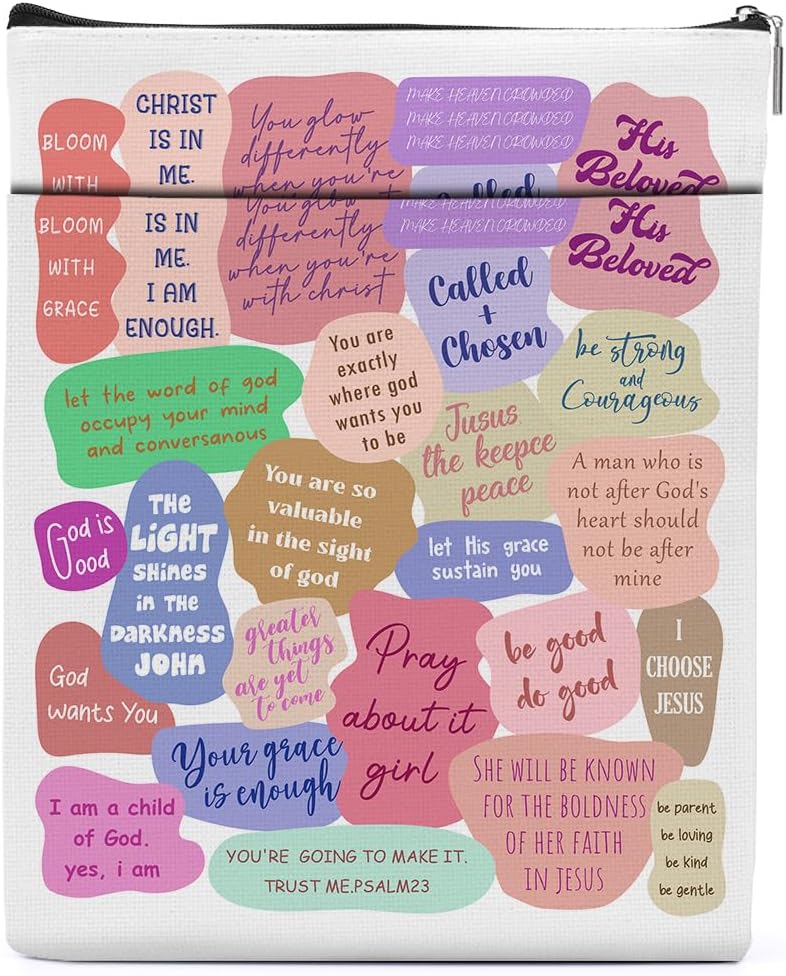 BLOOM
WITH
BLOOM
WITH
GRACE
CHRIST
IS IN
ME.
IS IN
ME.
I AM
ENOUGH.
You glow
differently
when you're
You glow
differently
when you're
with christ
MAKE HEAVEN CROWDED
MAKE HEAVEN CROWDED
MAKE HEAVEN CROWDED
Called
MAKE HEAVEN CROWDED
MAKE HEAVEN CROWDED
Called
+
Chosen
His
Beloved
His
Beloved
let the word of god
occupy your mind
and conversanous
You are
exactly
where god
wants you
to be
be strong
and
Courageous
Jusus,
the keepce
peace
A man who is
not after God's
heart should
not be after
mine
God is
Good
THE
LiGHT
SHiNES
iN THE
DARKNESS
JOHN
You are so
valuable
in the sight
of god
let His grace
sustain you
God
wants You
greater
things
are yet
to come
Pray
about it
girl
be good
do good
I
CHOOSE
JESUS
Your grace
is enough
I am a child
of God.
yes, i am
YOU'RE GOING TO MAKE IT.
TRUST ME.PSALM23
SHE WILL BE KNOWN
FOR THE BOLDNESS
OF HER FAITH
IN JESUS
be parent
be loving
be kind
be gentle